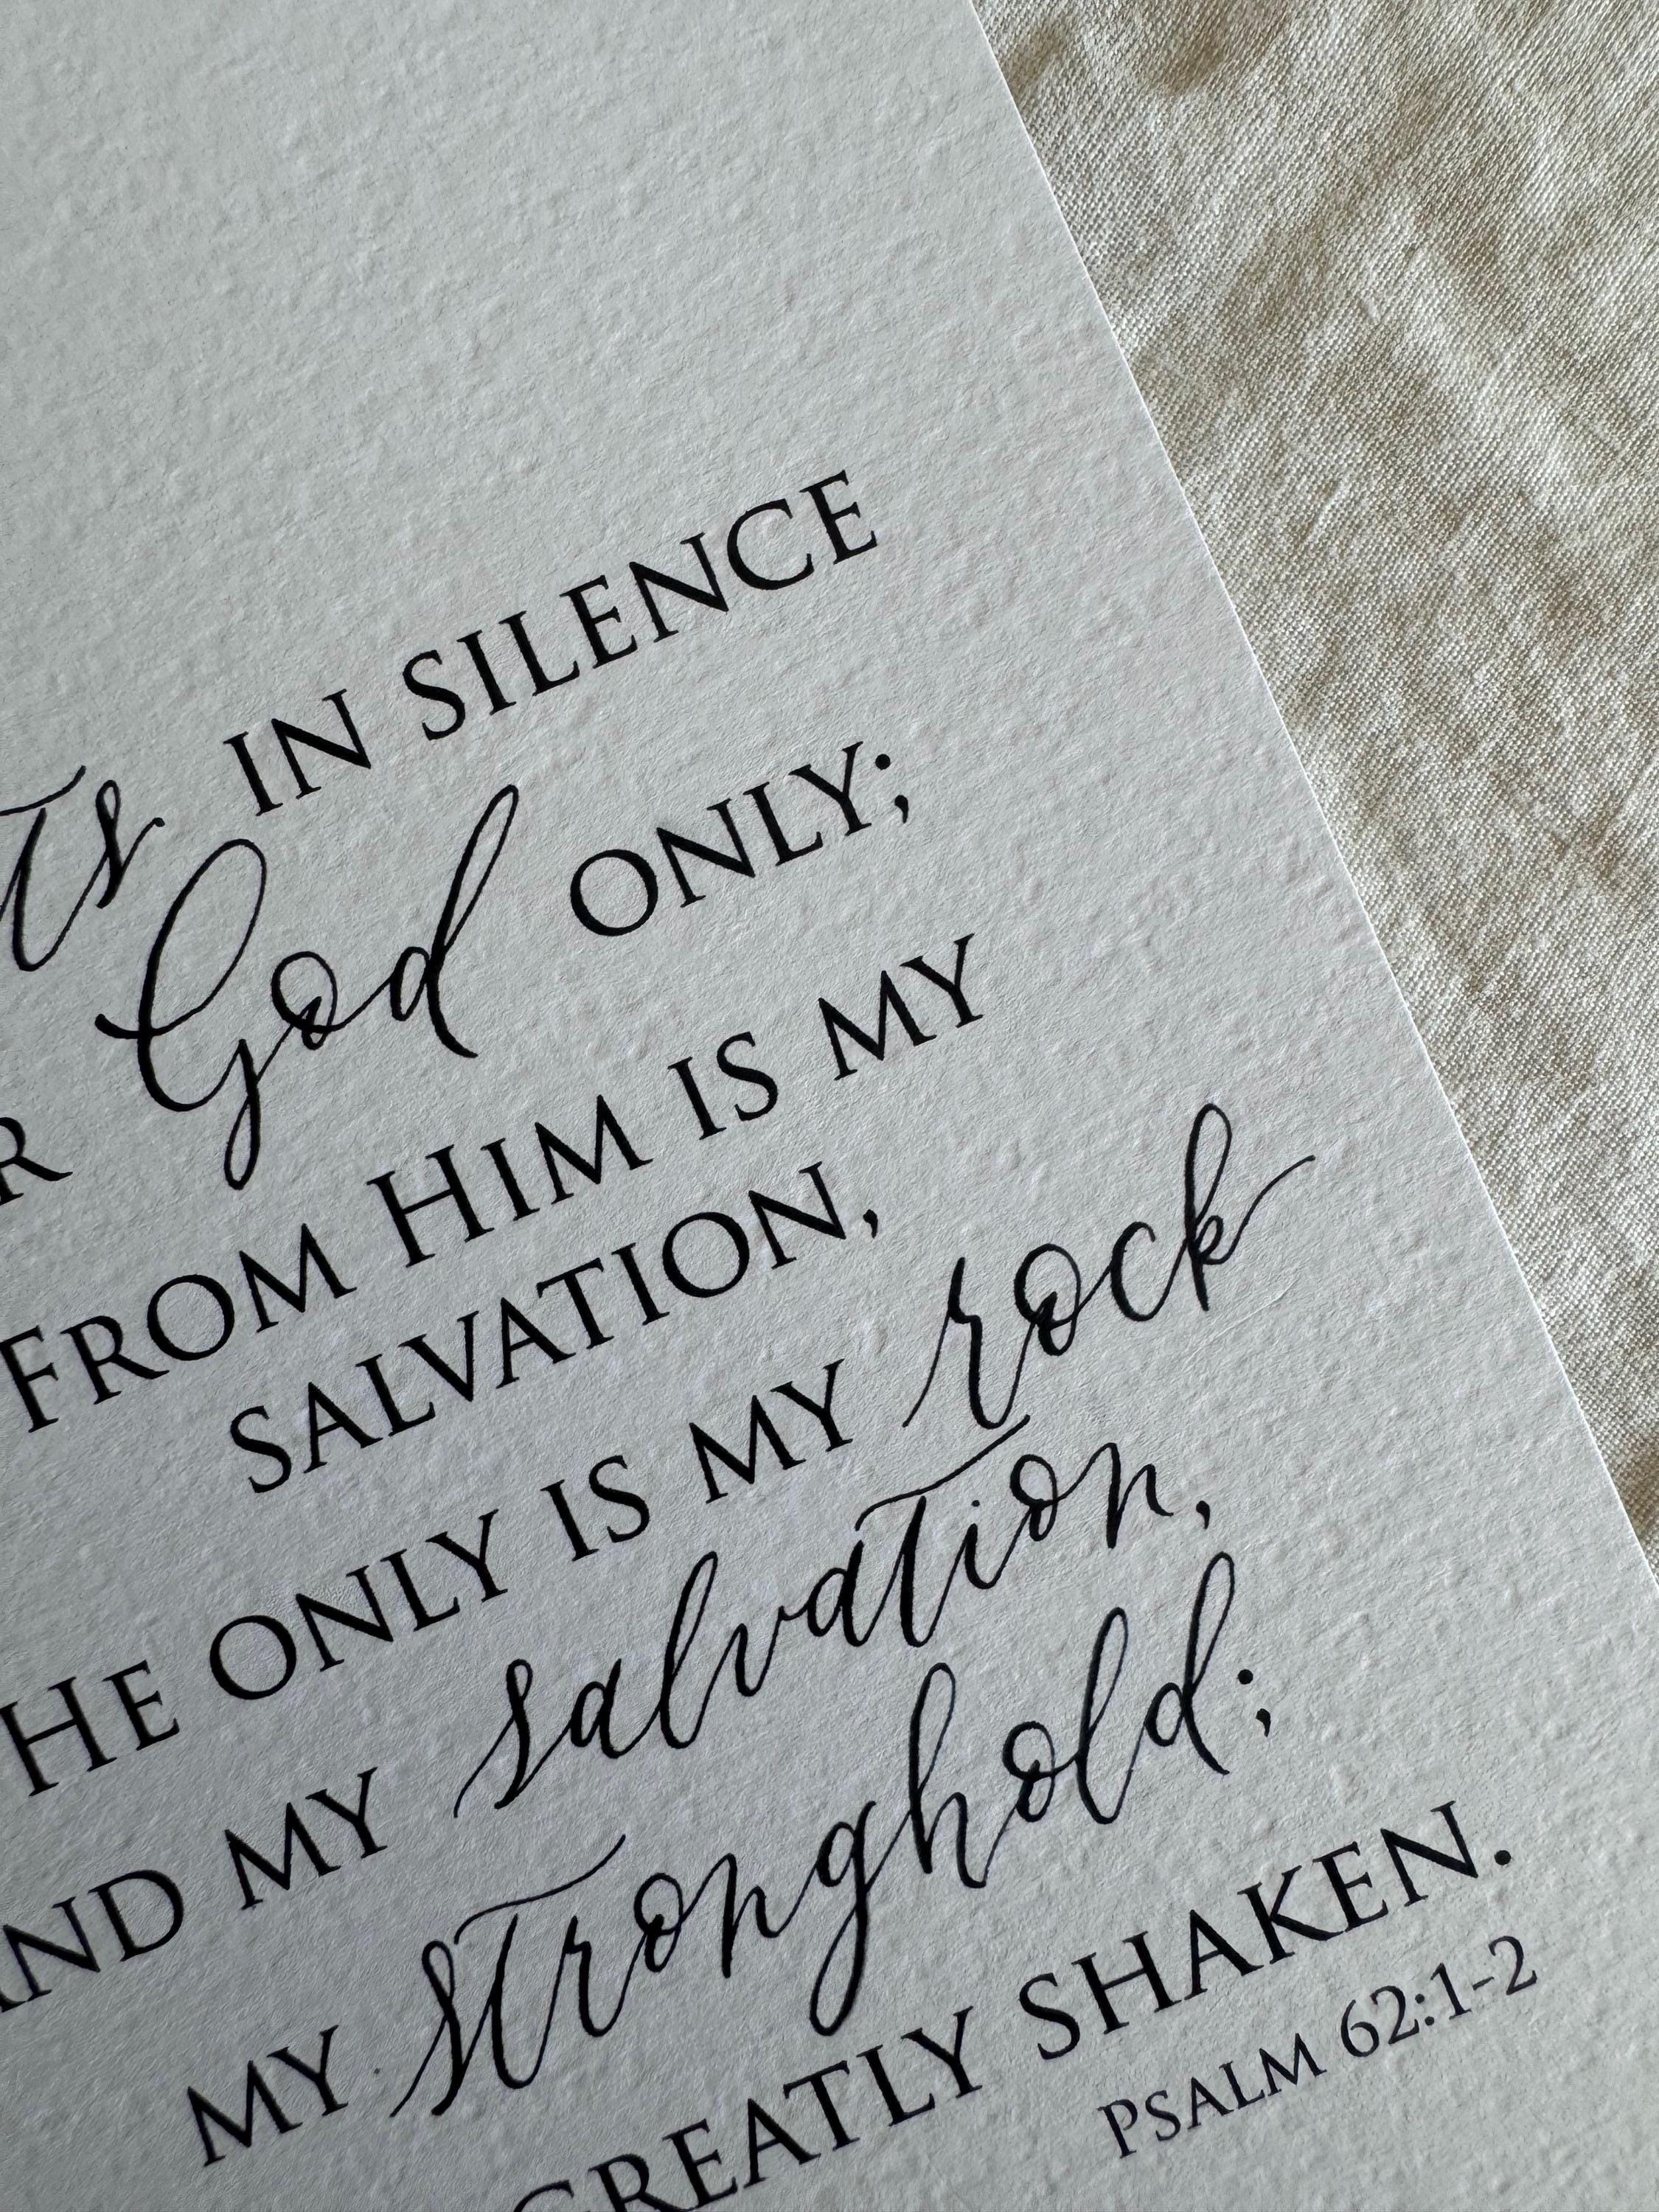 IN SILENCE
God ONLY;
FROM HIM IS MY
SALVATION,
HE ONLY IS MY rock
AND MY salvation,
MY stronghold;
GREATLY SHAKEN.
PSALM 62:1-2